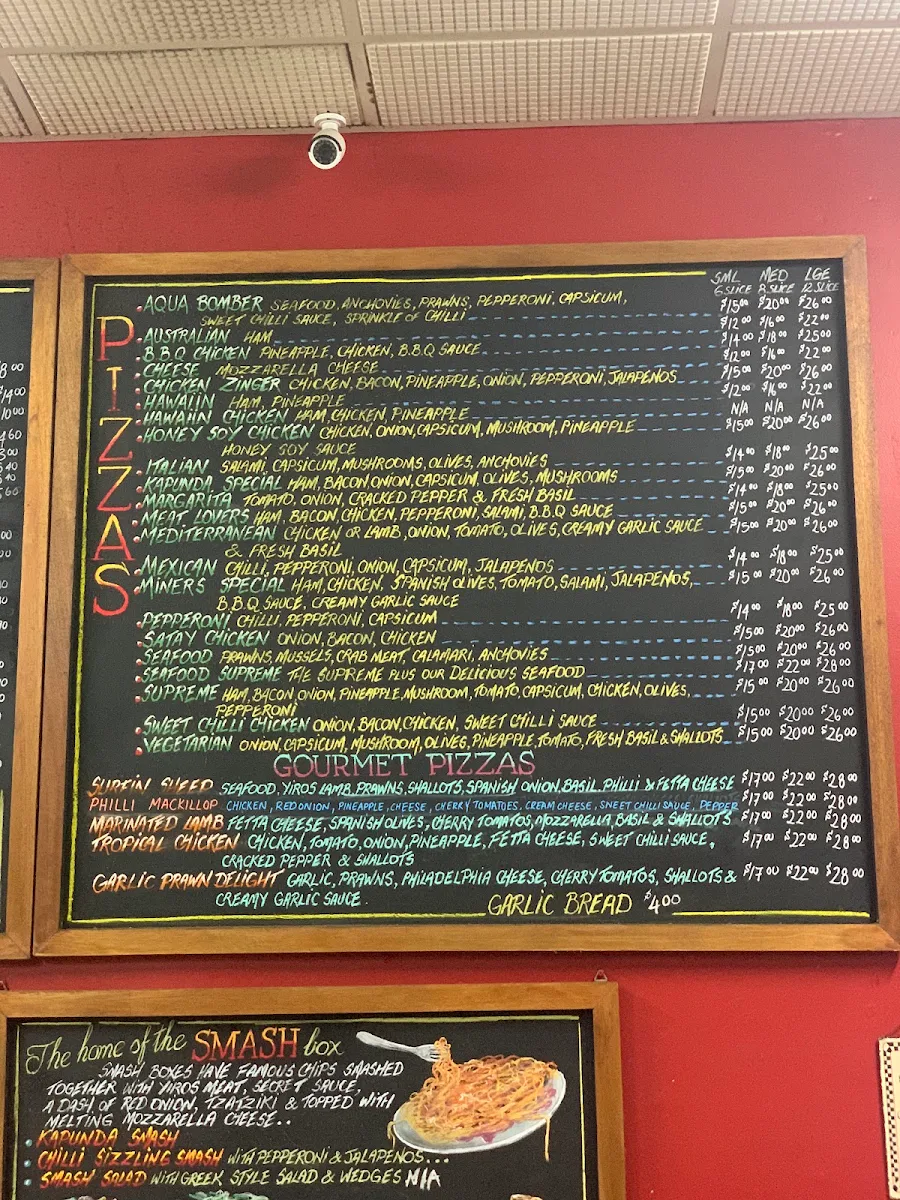 SML MED LGE
6 SLICE 8 SLICE 12 SLICE
PIZZAS
AQUA BOMBER SEAFOOD, ANCHOVIES, PRAWNS, PEPPERONI, CAPSICUM, $15.00 $20.00 $26.00
SWEET CHILLI SAUCE, SPRINKLE OF CHILLI
AUSTRALIAN HAM $12.00 $16.00 $22.00
B.B.Q CHICKEN PINEAPPLE, CHICKEN, B.B.Q SAUCE $14.00 $18.00 $25.00
CHEESE MOZZARELLA CHEESE $12.00 $16.00 $22.00
CHICKEN ZINGER CHICKEN, BACON, PINEAPPLE, ONION, PEPPERONI, JALAPENOS $15.00 $20.00 $26.00
HAWAIIN HAM, PINEAPPLE $12.00 $16.00 $22.00
HAWAIIN CHICKEN HAM CHICKEN, PINEAPPLE N/A N/A N/A
HONEY SOY CHICKEN CHICKEN, ONION, CAPSICUM, MUSHROOM, PINEAPPLE $15.00 $20.00 $26.00
HONEY SOY SAUCE
ITALIAN SALAMI, CAPSICUM, MUSHROOMS, OLIVES, ANCHOVIES $14.00 $18.00 $25.00
KAPUNDA SPECIAL HAM, BACON ONION, CAPSICUM, OLIVES, MUSHROOMS $15.00 $20.00 $26.00
MARGARITA TOMATO, ONION, CRACKED PEPPER & FRESH BASIL $14.00 $18.00 $25.00
MEAT LOVERS HAM, BACON, CHICKEN, PEPPERONI, SALAMI, B.B.Q SAUCE $15.00 $20.00 $26.00
MEDITERRANEAN CHICKEN OR LAMB, ONION, TOMATO, OLIVES, CREAMY GARLIC SAUCE $15.00 $20.00 $26.00
& FRESH BASIL
MEXICAN CHILLI, PEPPERONI, ONION, CAPSICUM, JALAPENOS $14.00 $18.00 $25.00
MINERS SPECIAL HAM, CHICKEN, SPANISH OLIVES, TOMATO, SALAMI, JALAPENOS, $15.00 $20.00 $26.00
B.B.Q SAUCE, CREAMY GARLIC SAUCE
PEPPERONI CHILLI, PEPPERONI, CAPSICUM $14.00 $18.00 $25.00
SATAY CHICKEN ONION, BACON, CHICKEN $15.00 $20.00 $26.00
SEAFOOD PRAWNS, MUSSELS, CRAB MEAT, CALAMARI, ANCHOVIES $15.00 $20.00 $26.00
SEAFOOD SUPREME THE SUPREME PLUS OUR DELICIOUS SEAFOOD $17.00 $22.00 $28.00
SUPREME HAM, BACON, ONION, PINEAPPLE, MUSHROOM, TOMATO, CAPSICUM, CHICKEN, OLIVES, $15.00 $20.00 $26.00
PEPPERONI
SWEET CHILLI CHICKEN ONION, BACON, CHICKEN, SWEET CHILLI SAUCE $15.00 $20.00 $26.00
VEGETARIAN ONION, CAPSICUM, MUSHROOM, OLIVES, PINEAPPLE, TOMATO, FRESH BASIL & SHALLOTS $15.00 $20.00 $26.00
GOURMET PIZZAS
SURFIN SHEEP SEAFOOD, YIROS LAMB, PRAWNS, SHALLOTS, SPANISH ONION, BASIL, PHILLI & FETTA CHEESE $17.00 $22.00 $28.00
PHILLI MACKILLOP CHICKEN, RED ONION, PINEAPPLE, CHEESE, CHERRY TOMATOES, CREAM CHEESE, SWEET CHILLI SAUCE, PEPPER $17.00 $22.00 $28.00
MARINATED LAMB FETTA CHEESE, SPANISH OLIVES, CHERRY TOMATOS, MOZZARELLA, BASIL & SHALLOTS $17.00 $22.00 $28.00
TROPICAL CHICKEN CHICKEN, TOMATO, ONION, PINEAPPLE, FETTA CHEESE, SWEET CHILLI SAUCE, $17.00 $22.00 $28.00
CRACKED PEPPER & SHALLOTS
GARLIC PRAWN DELIGHT GARLIC, PRAWNS, PHILADELPHIA CHEESE, CHERRY TOMATOS, SHALLOTS & $17.00 $22.00 $28.00
CREAMY GARLIC SAUCE.
GARLIC BREAD $4.00
The home of the SMASH box
SMASH BOXES HAVE FAMOUS CHIPS SMASHED
TOGETHER WITH YIROS MEAT, SECRET SAUCE,
A DASH OF RED ONION, TZATZIKI & TOPPED WITH
MELTING MOZZARELLA CHEESE..
KAPUNDA SMASH
CHILLI SIZZLING SMASH WITH PEPPERONI & JALAPENOS...
SMASH SALAD WITH GREEK STYLE SALAD & WEDGES N/A